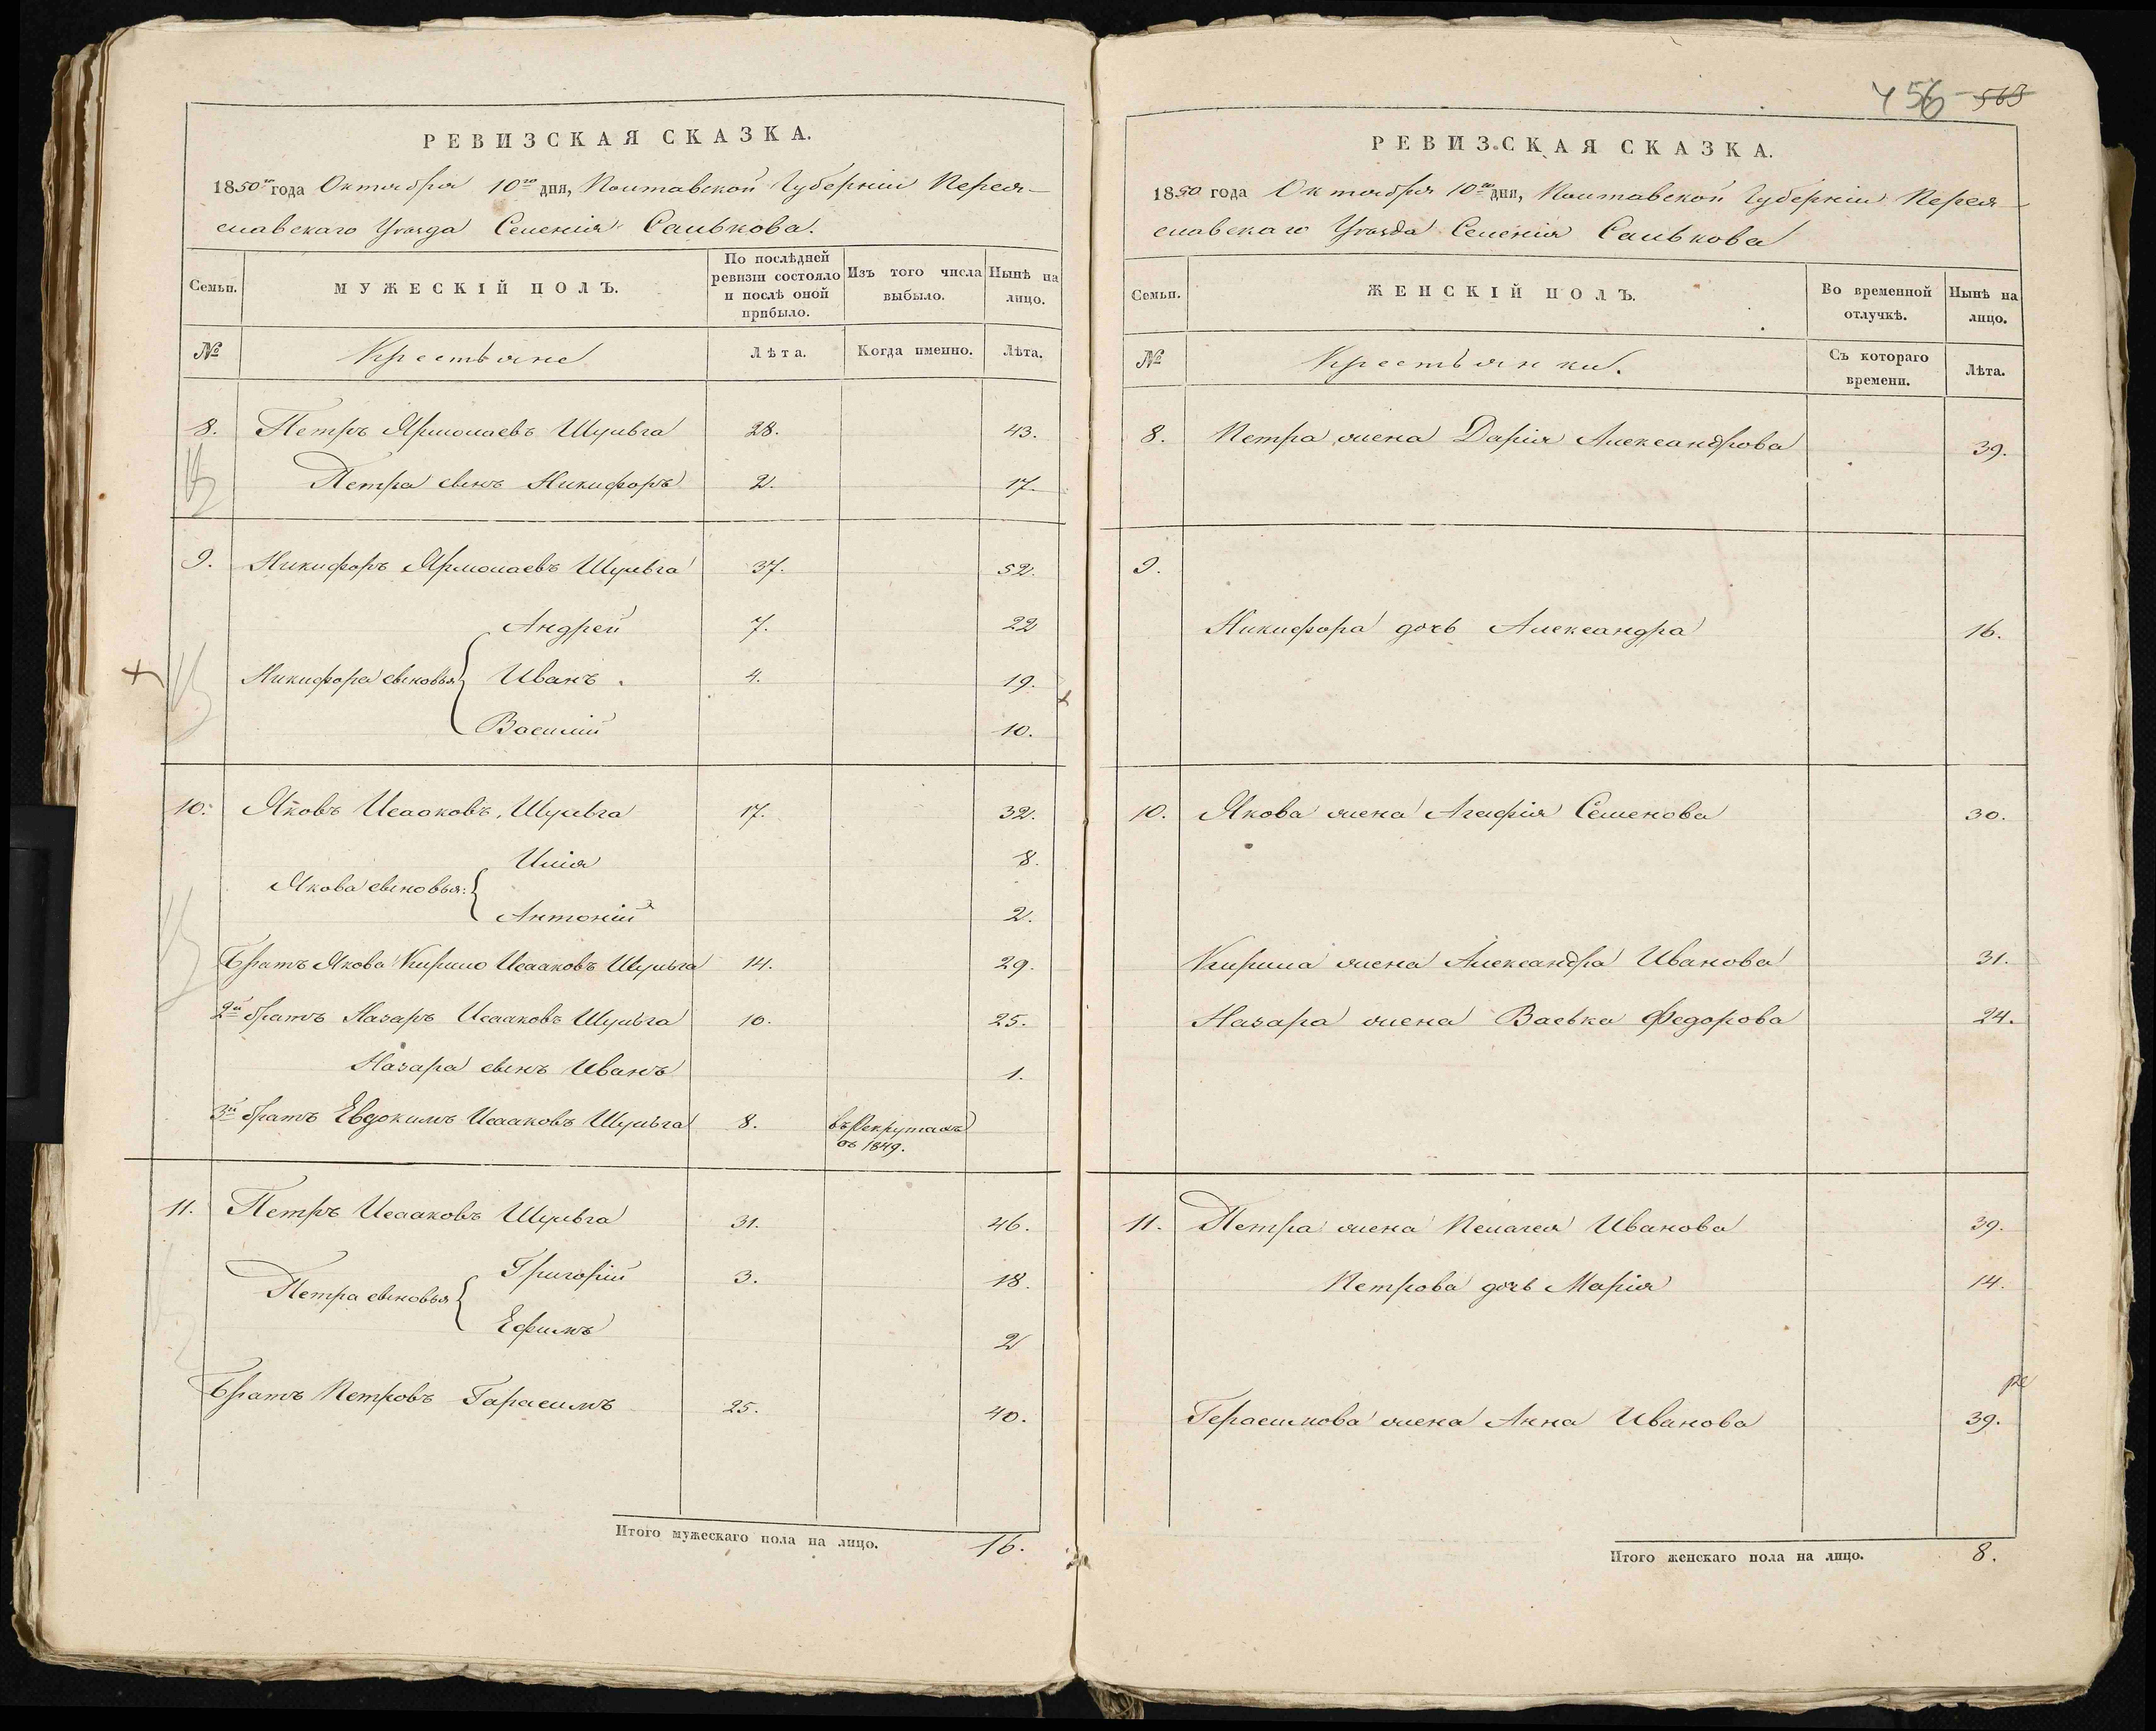 РЕВИЗСКАЯ СКАЗКА.
1850го года Октября 10го дня, Полтавской Губерніи Перея-
славскаго Уѣзда Селенія Салькова.
Семьи.
МУЖЕСКІЙ ПОЛЪ.
По послѣдней ревизіи состояло и послѣ оной прибыло.
Изъ того числа выбыло.
Нынѣ на лицо.
№
Крестьяне
Лѣта.
Когда именно.
Лѣта.
8. Петръ Ярмолаевъ Шульга 28. 43.
Петра сынъ Никифоръ 2. 17.
9. Никифоръ Ярмолаевъ Шульга 37. 52.
Андрей 7. 22
Никифора сыновья Иванъ. 4. 19.
Василій 10.
10. Яковъ Исааковъ Шульга 17. 32.
Илія 8.
Якова сыновья:
Антоній 2.
Братъ Якова Кирило Исааковъ Шульга 14. 29.
2й братъ Назаръ Исааковъ Шульга 10. 25.
Назара сынъ Иванъ 1.
3й братъ Евдокимъ Исааковъ Шульга 8. въ Рекрутахъ
съ 1849.
11. Петръ Исааковъ Шульга 31. 46.
Григорій 3. 18.
Петра сыновья
Ефимъ 2
Братъ Петровъ Гарасимъ 25. 40.
Итого мужескаго пола на лицо. 16.
456 563
РЕВИЗСКАЯ СКАЗКА.
1850 года Октября 10го дня, Полтавской Губерніи Перея-
славскаго Уѣзда Селенія Салькова
Семьи.
ЖЕНСКІЙ ПОЛЪ.
Во временной отлучкѣ.
Нынѣ на лицо.
№
Крестьянки.
Съ котораго времени.
Лѣта.
8. Петра жена Дарія Александрова 39.
9.
Никифора дочь Александра 16.
10. Якова жена Агафія Семенова 30.
Кирила жена Александра Иванова 31.
Назара жена Васька Федорова 24.
11. Петра жена Пелагея Иванова 39.
Петрова дочь Марія 14.
Герасимова жена Анна Иванова 39.
Итого женскаго пола на лицо. 8.